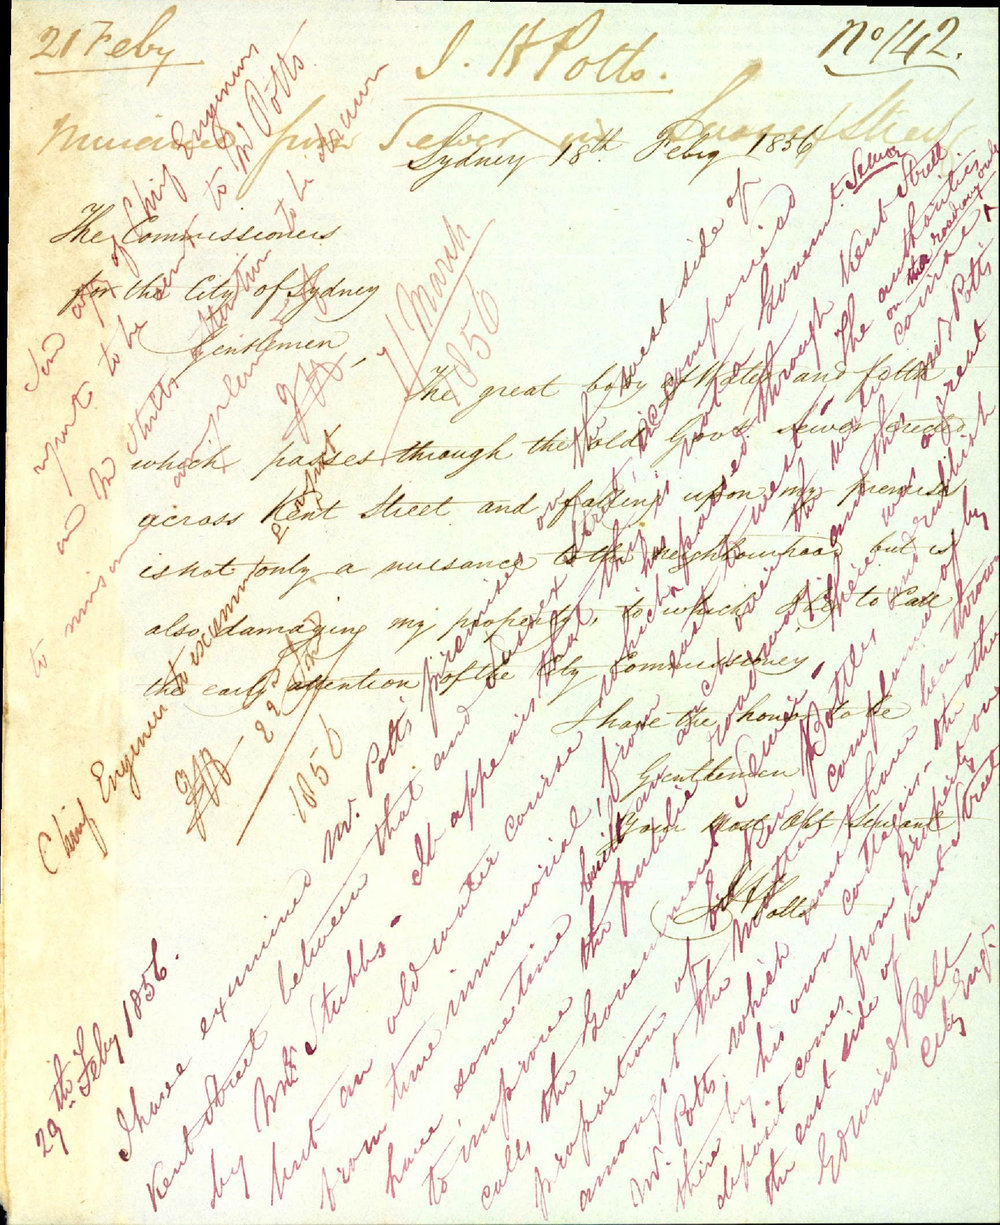 21 Feby
J. H Potts.
No 142.
Nuisance from Sewer in Sussex Street
Sydney 18th Feby 1856
The Commissioners
for the City of Sydney
Gentlemen,
The great body of Water and filth
which passes through the old Govt sewer erected
across Kent Street and falling upon my premises
is not only a nuisance to the neighbourhood but is
also damaging my property, to which I beg to call
the early attention of the City Commissioners,
I have the honor to be
Gentlemen
Your Most Obt Servant
J H Potts
Chief Engineer to examine & report
22 Feb
1856
29th Feby 1856.
I have examined Mr. Potts premises on the west side of
Kent Street between that and Sussex Street, accompanied
by Mr. Stubbs. It appears that this is not a Goverment Sewer
but an old water course which passed through Kent Street
from time immemorial, from
have some time built an arch over the water course on the roadway only
to improve the public road and this Mr Potts
calls the Government Sewer, there was a great
proportion of Bottles and rubbish
amongst the complained of by
Mr. Potts, which must have been thrown
there by his own cottagers. the other
deposit comes from property on
the east side of Kent Street
Edward Bell
City Engr.
Send copy of Chief Engineers
report to be sent to Mr Potts.
and Mr Stubbs' attention to be drawn
to
7/ March
1856